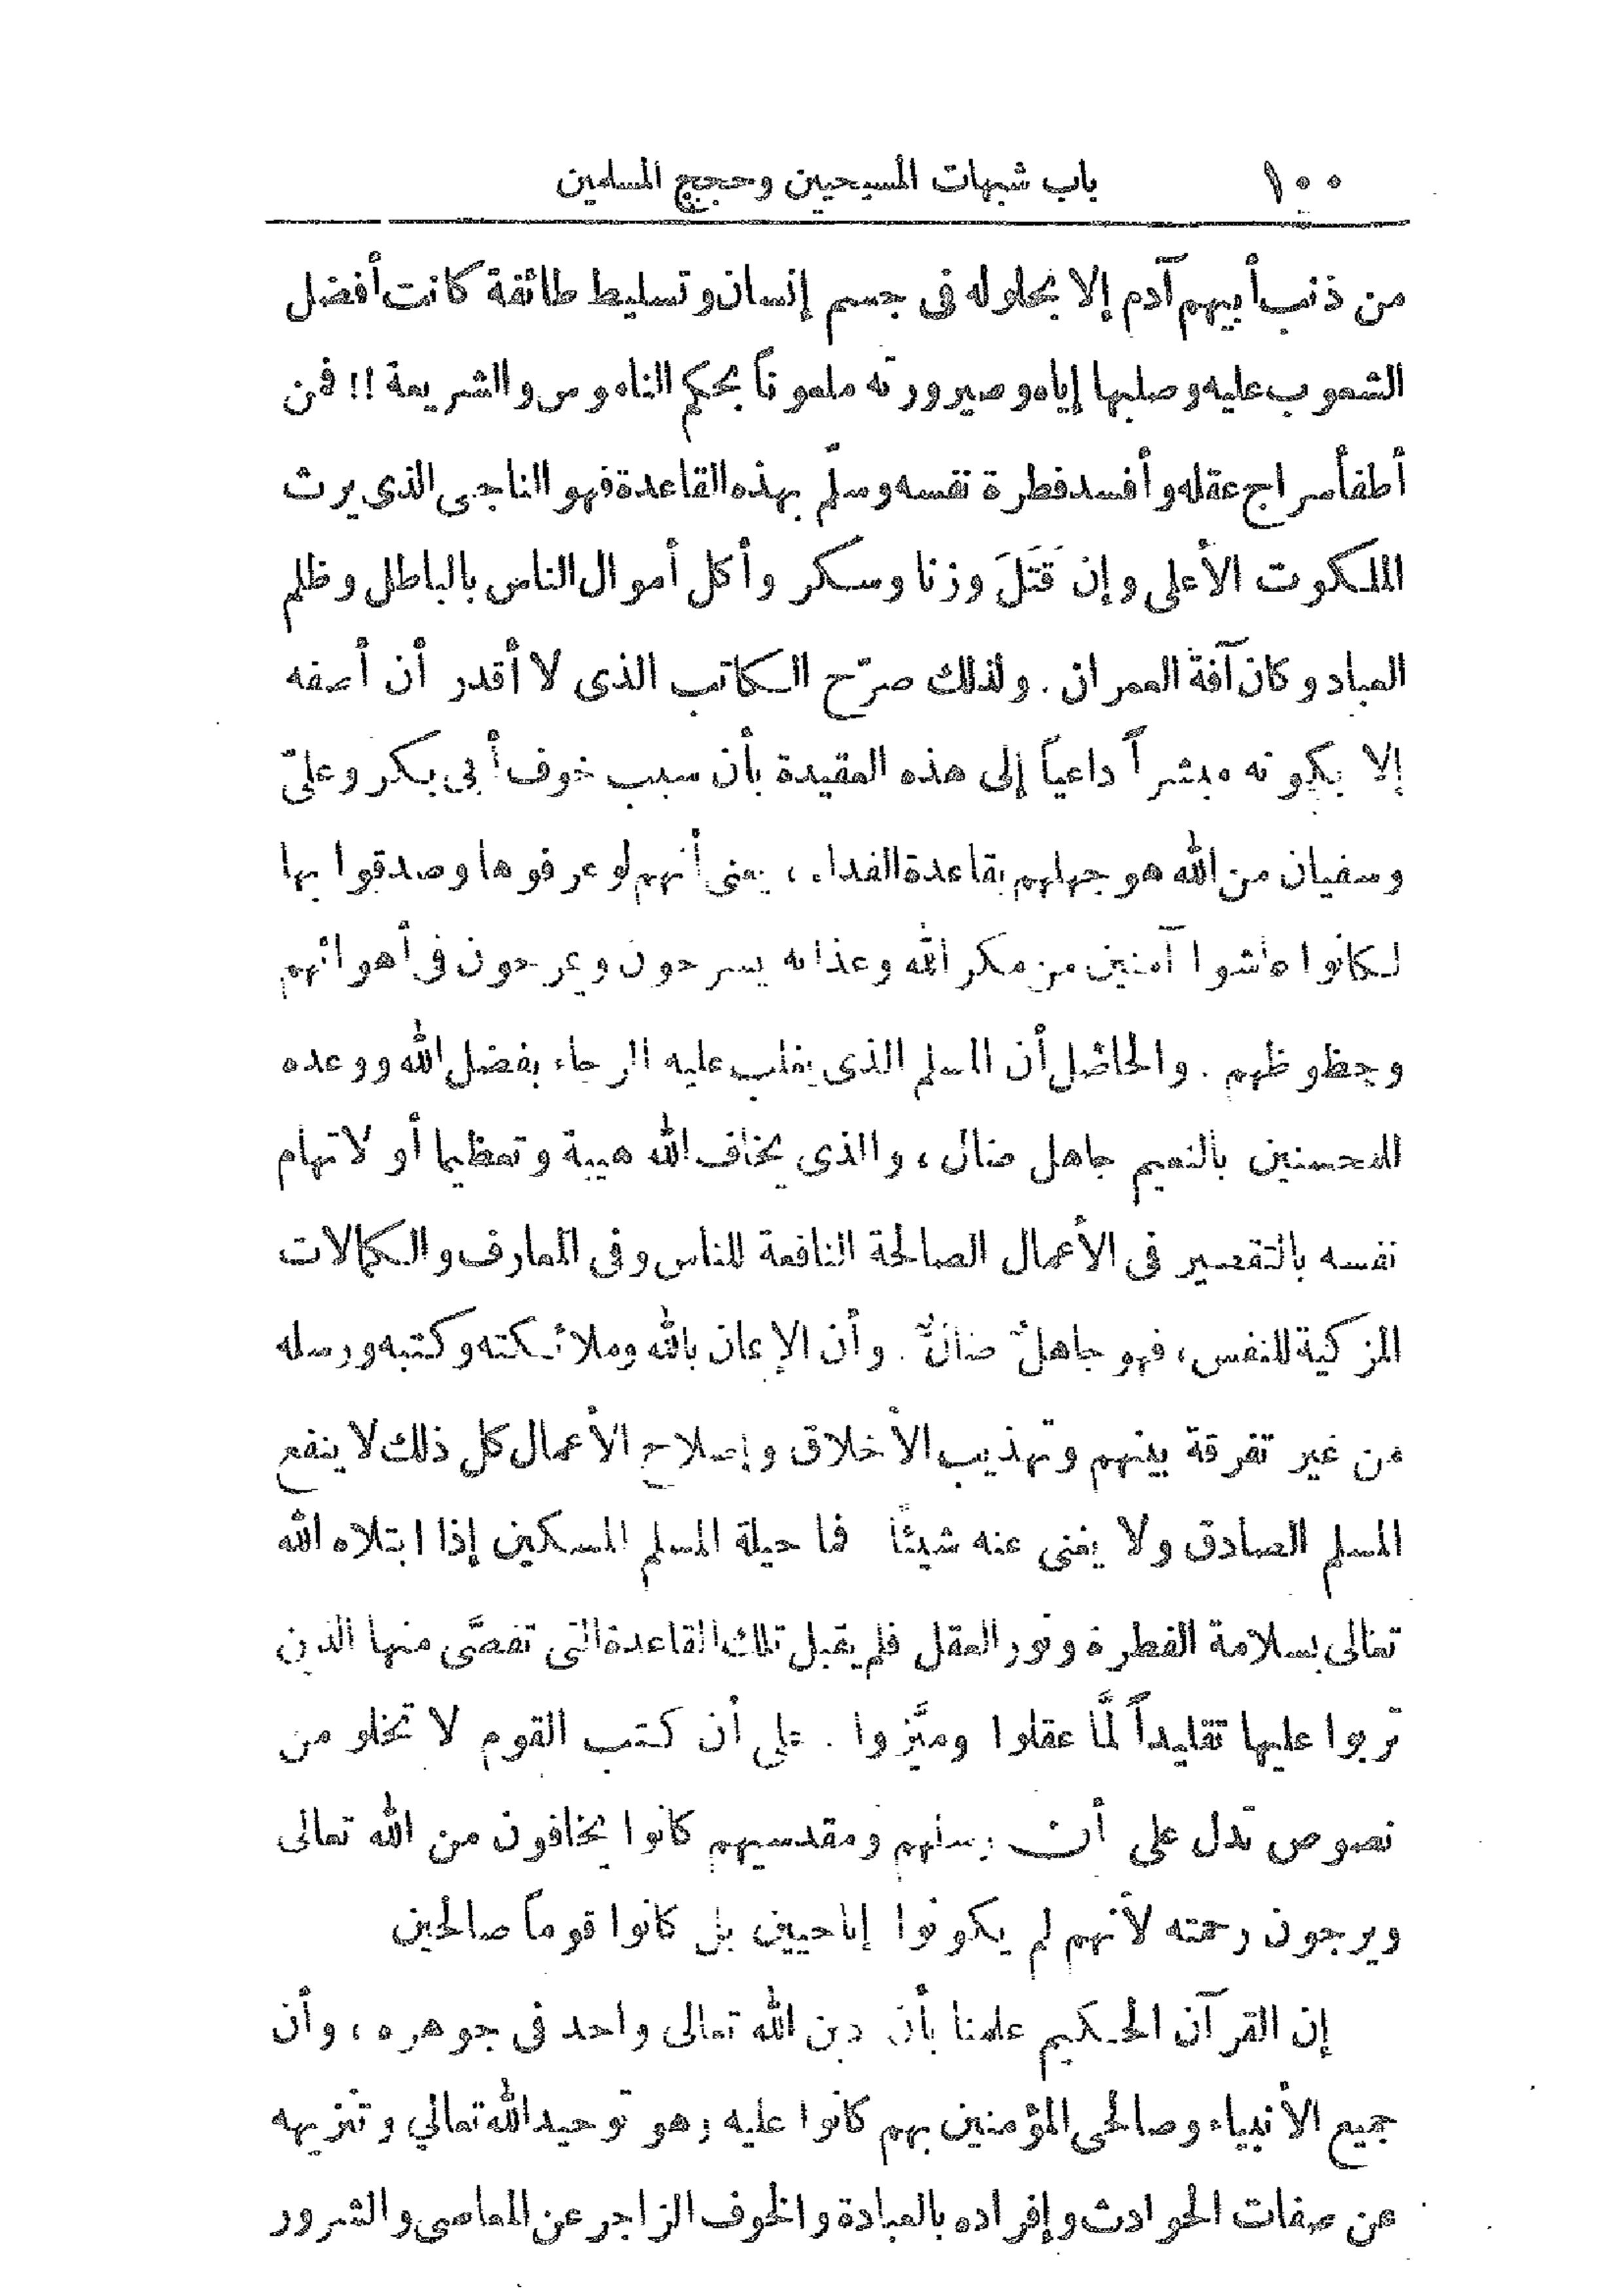 ١٠٠ باب شبهات المسيحيين وحجج المسلمين
من ذنب أبيهم آدم إلا بحلوله فى جسم إنسان وتسليط طائفة كانت أفضل
الشعوب عليه وصلبها إياه وصيرورته ملعوناً بحكم الناموس والشريعة !! فمن
أطفأ سراج عقله وأفسد فطرة نفسه وسلّم بهذه القاعدة فهو الناجى الذى يرث
الملكوت الأعلى وإن قَتَلَ وزنا وسكر وأكل أموال الناس بالباطل وظلم
العباد وكان آفة العمران . ولذلك صرّح الكاتب الذى لا أقدر أن أصفه
إلا بكونه مبشراً داعياً إلى هذه العقيدة بأن سبب خوف أبى بكر وعلىّ
وسفيان من الله هو جهلهم بقاعدة الفداء ، يعنى أنهم لو عرفوها وصدقوا بها
لكانوا عاشوا آمنين من مكر الله وعذابه يسرحون ويمرحون فى أهوائهم
وحظوظهم . والحاصل أن المسلم الذى يغلب عليه الرجاء بفضل الله ووعده
للمحسنين بالنعيم جاهل ضال ، والذى يخاف الله هيبة وتعظيما أو لاتهام
نفسه بالتقصير فى الأعمال الصالحة النافعة للناس وفى المعارف والكمالات
المزكية للنفس ، فهو جاهلٌ ضالٌّ . وأن الإيمان بالله وملائكته وكتبه ورسله
من غير تفرقة بينهم وتهذيب الأخلاق وإصلاح الأعمال كل ذلك لا ينفع
المسلم الصادق ولا يغنى عنه شيئاً فما حيلة المسلم المسكين إذا ابتلاه الله
تعالى بسلامة الفطرة ونور العقل فلم يقبل تلك القاعدة التى تفصَّى منها الذين
تربوا عليها تقليداً لمَّا عقلوا وميَّزوا . على أن كتب القوم لا تخلو من
نصوص تدل على أن رسلهم ومقدسيهم كانوا يخافون من الله تعالى
ويرجون رحمته لأنهم لم يكونوا إباحيين بل كانوا قوماً صالحين
إن القرآن الحكيم علمنا بأن دين الله تعالى واحد فى جوهره ، وأن
جميع الأنبياء وصالحى المؤمنين بهم كانوا عليه وهو توحيد الله تعالي وتنزيهه
عن صفات الحوادث وإفراده بالعبادة والخوف الزاجر عن المعاصى والشرور